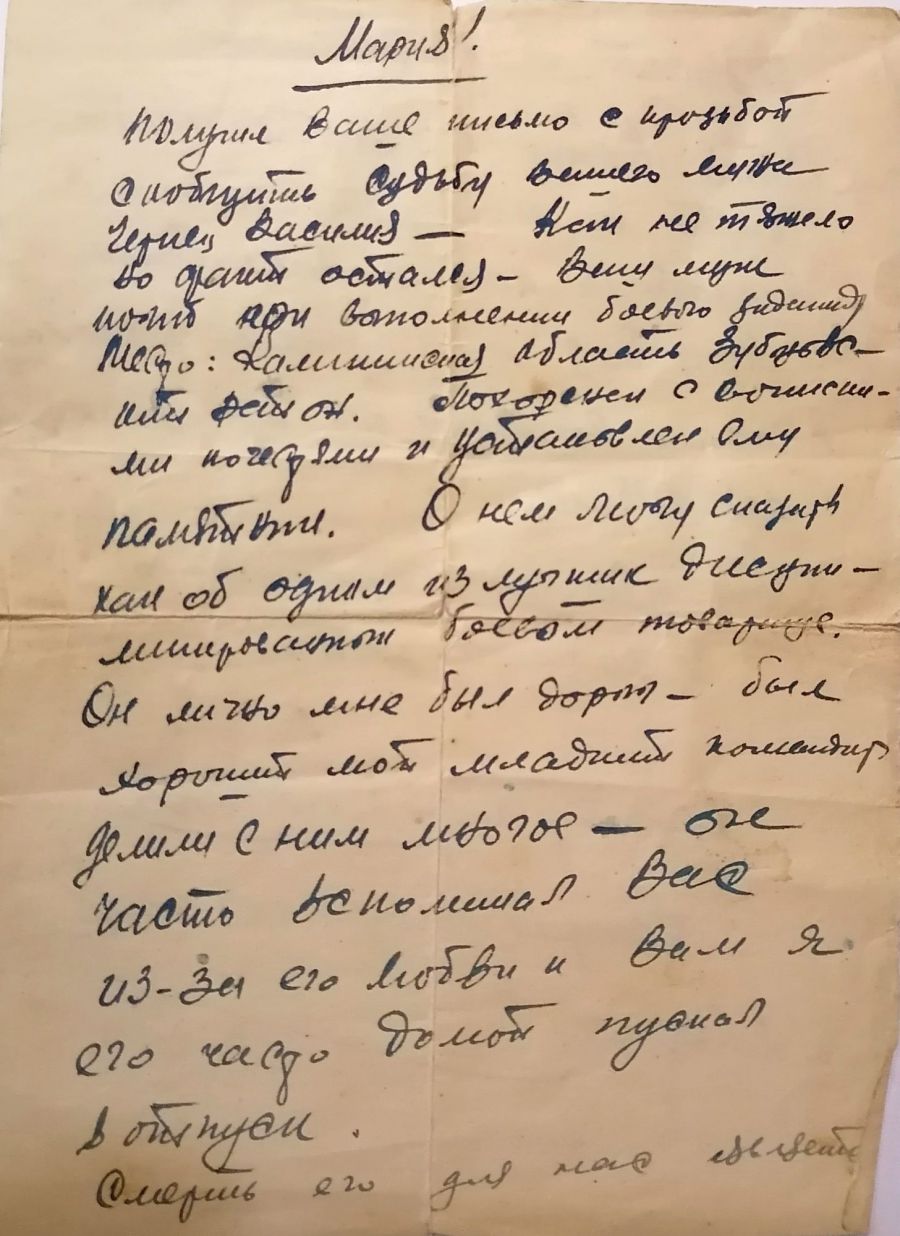 Мария!
Получил Ваше письмо с прозьбой
сообщить судьбу вашего мужа
Чернец Василия — Как не тяжело
но факт остался — Ваш муж
погиб при выполнении боевого задания
Место: Калининская область Зубцовс-
кий район. Похоронен с воински-
ми почестями и установлен ему
памятник. О нем могу сказать
как об одним из лучших дисципи-
линированном боевом товарище.
Он лично мне был дорог — был
хороший мой младший командир
делили с ним многое — он
часто вспоминал Вас
из-за его любви к Вам я
его часто домой пускал
в отпуск.
Смерть его для нас